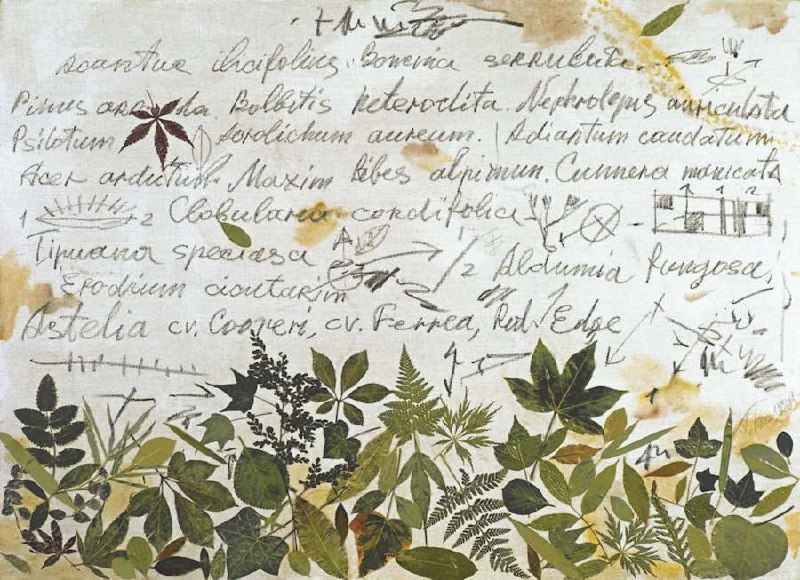 acantus ilicifolius. Boronia serrulata.
Pinus Bolbitis heteroclita. Nephrolepis auriculata
Psilotum acrolichum aureum. Adiantum caudatum
Acer ardutum Maxim Ribes alpinun. Cunnera manicata
1 2 Clobularia cordifolia
Tipuana speciasa
2 Aldumia fungosa,
Erodium cicutarim
Astelia cv. Cooreri, cv. Ferrea, Red. Edge